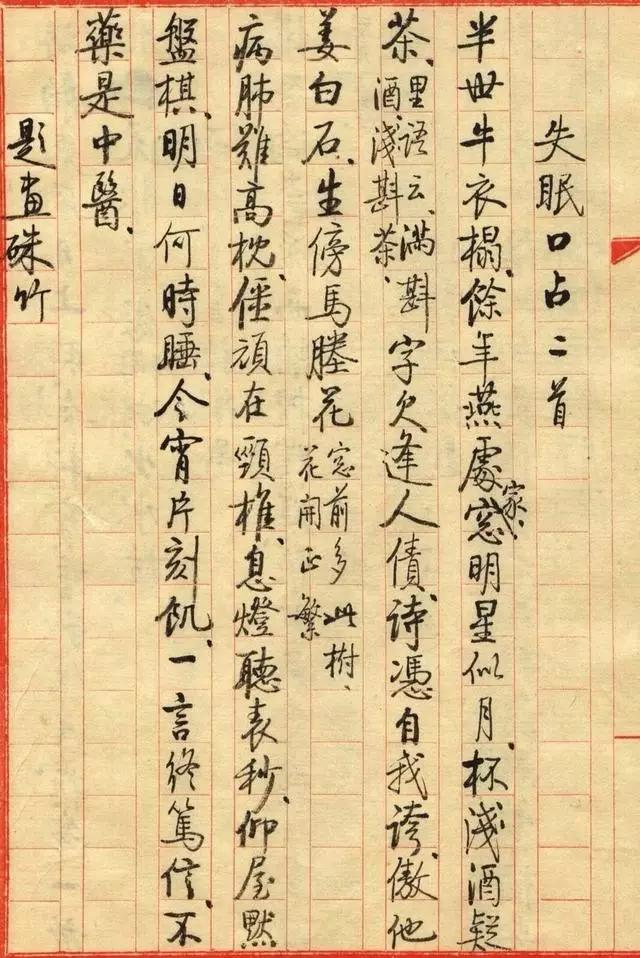 失眠口占二首
半世牛衣榻、餘年燕處家、窓明星似月、杯淺酒疑
茶、里語云、滿斟酒、淺斟茶、字欠逢人債、詩憑自我誇、傲他
姜白石、生傍馬塍花窓前多此樹、花開正繁
病肺難高枕、僵頑在頸椎、息燈聽表秒、仰屋默
盤棋、明日何時睡、今宵片刻飢、一言終篤信、不
藥是中醫、
題畫硃竹